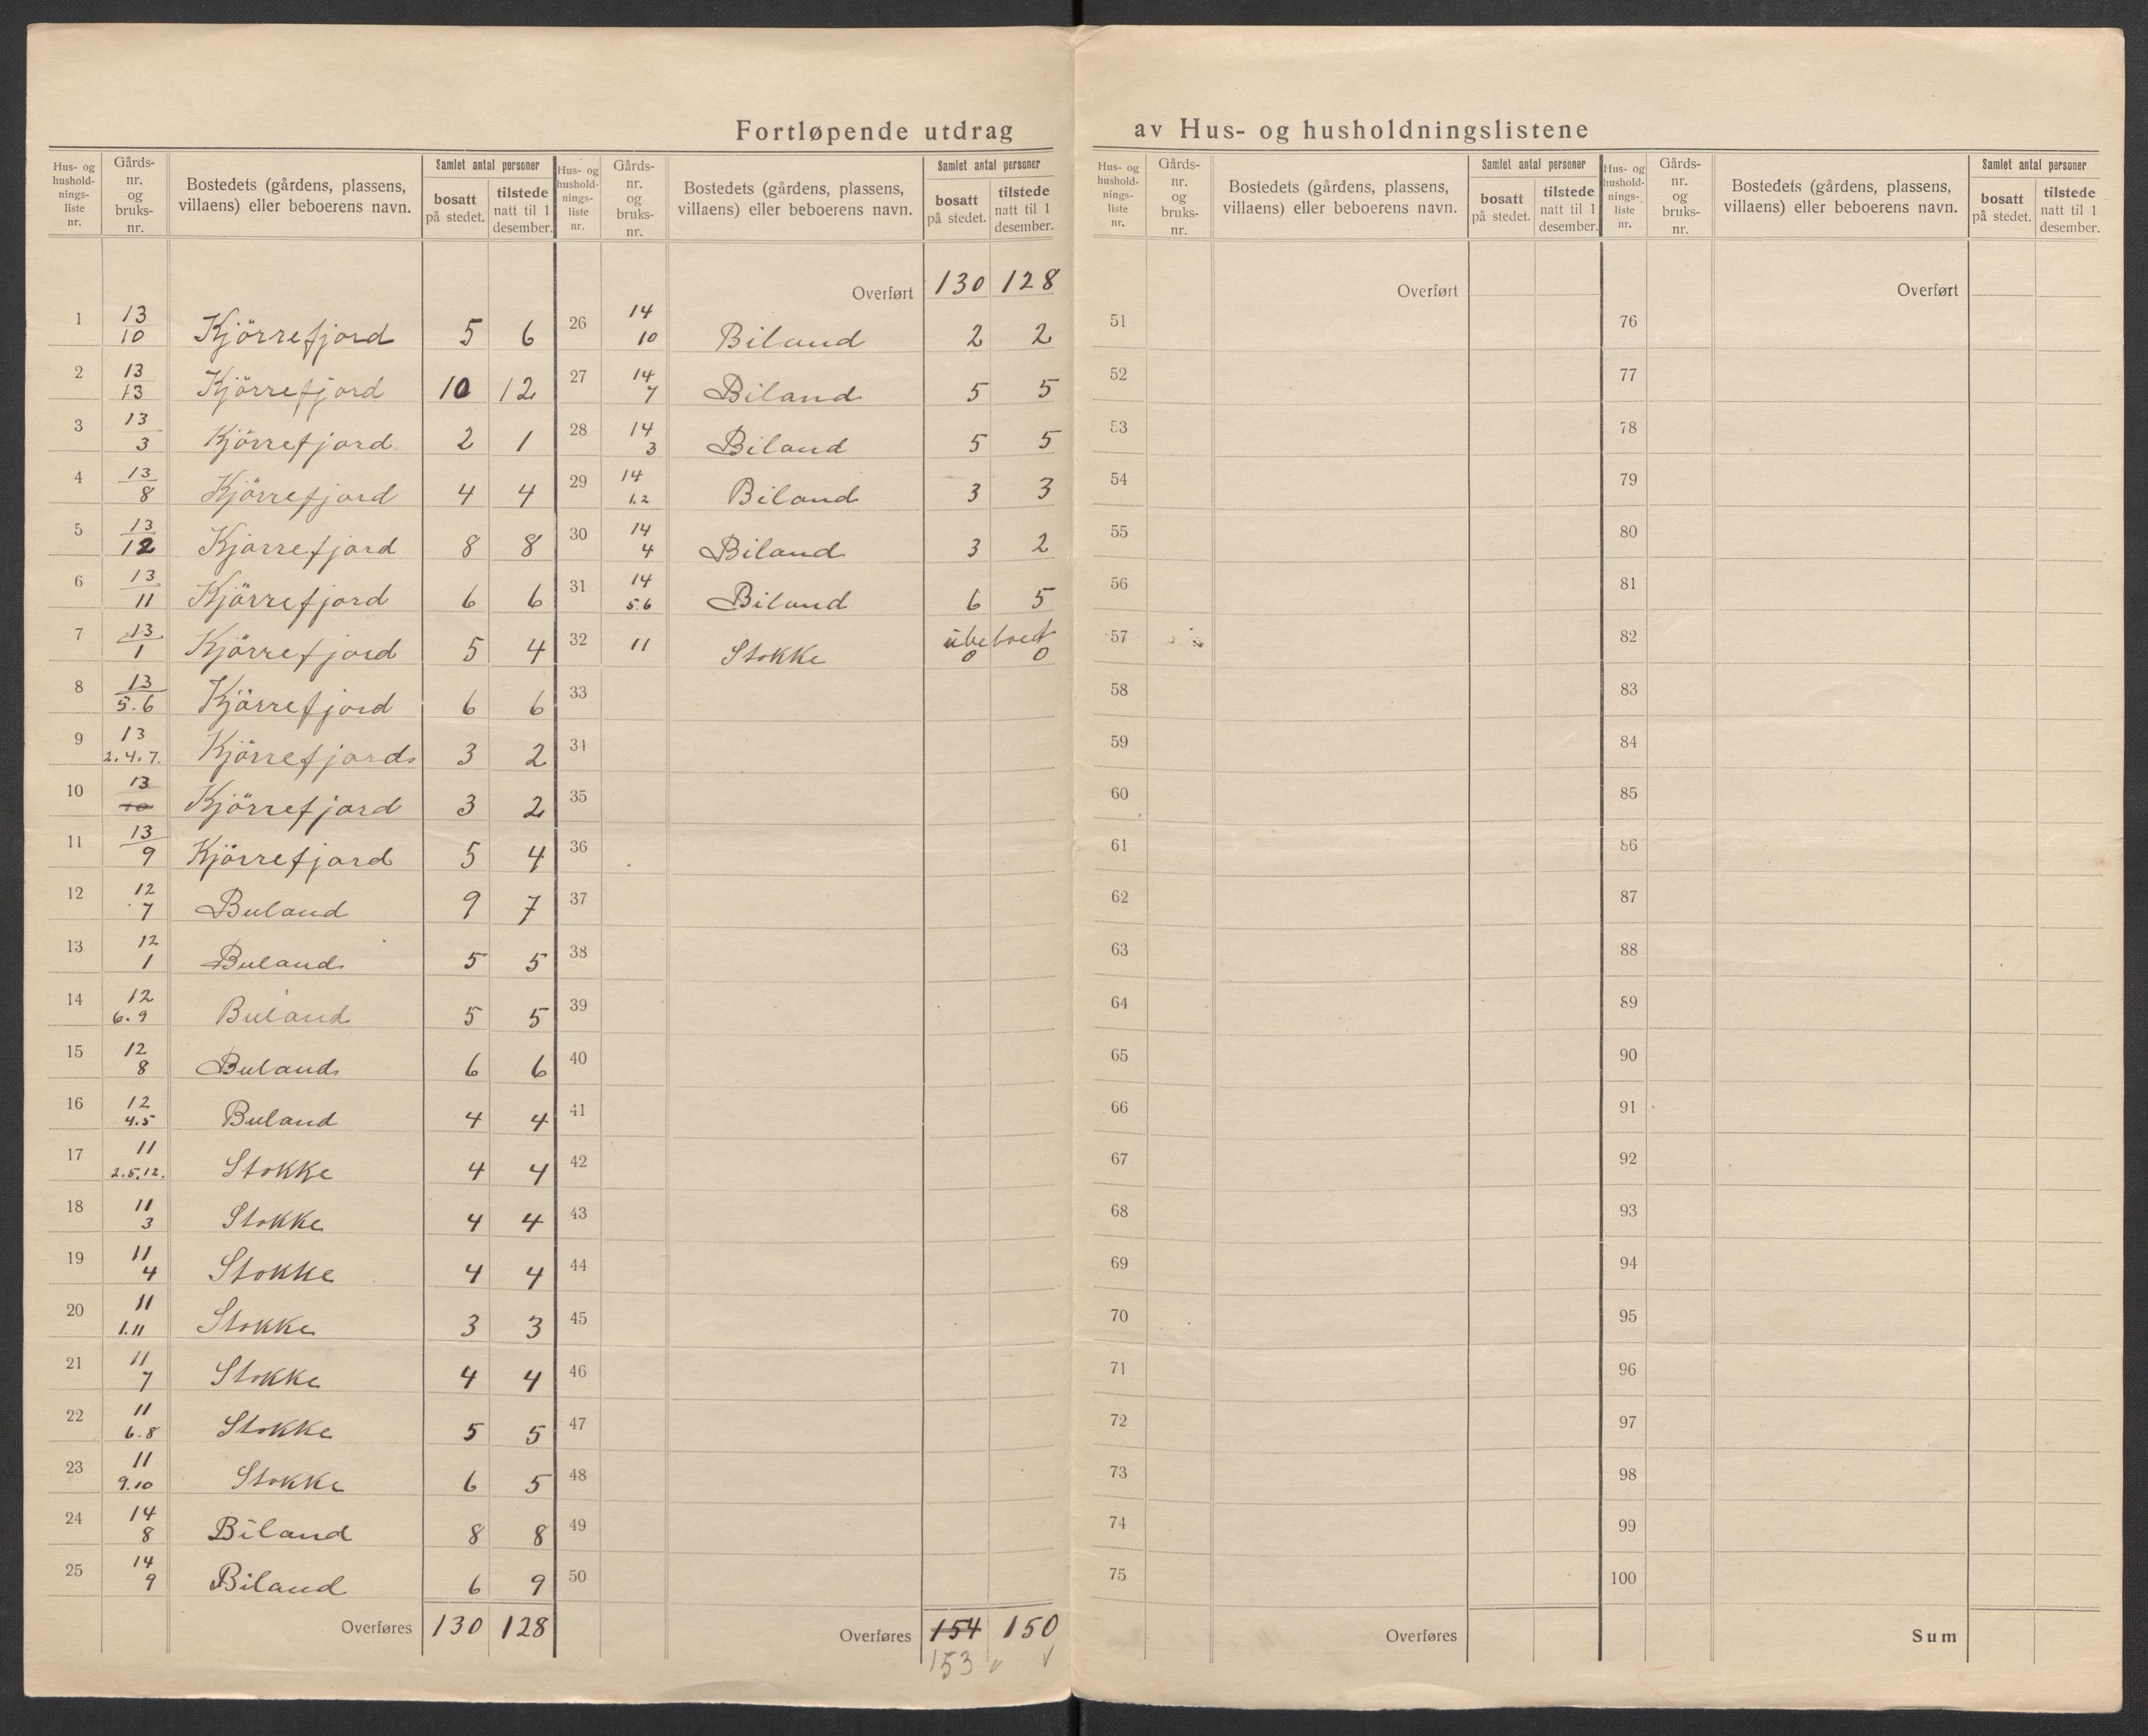 Fortløpende utdrag av Hus- og husholdningslistene
Hus- og husholdnings-liste nr. Gårds-nr. og bruks-nr. Bostedets (gårdens, plassens, villaens) eller beboerens navn. Samlet antal personer bosatt på stedet. tilstede natt til 1 desember.
1 13/10 Kjörrefjord 5 6
2 13/13 Kjörrefjord 10 12
3 13/3 Kjörrefjord 2 1
4 13/8 Kjörrefjord 4 4
5 13/12 Kjörrefjord 8 8
6 13/11 Kjörrefjord 6 6
7 13/1 Kjörrefjord 5 4
8 13/5.6 Kjörrefjord 6 6
9 13/2.4.7. Kjörrefjord 3 2
10 13/10 Kjörrefjord 3 2
11 13/9 Kjörrefjord 5 4
12 12/7 Buland 9 7
13 12/1 Buland 5 5
14 12/6.9 Buland 5 5
15 12/8 Buland 6 6
16 12/4.5 Buland 4 4
17 11/2.5.12. Stokke 4 4
18 11/3 Stokke 4 4
19 11/4 Stokke 4 4
20 11/1.11 Stokke 3 3
21 11/7 Stokke 4 4
22 11/6.8 Stokke 5 5
23 11/9.10 Stokke 6 5
24 14/8 Biland 8 8
25 14/9 Biland 6 9
Overføres 130 128
Hus- og husholdnings-liste nr. Gårds-nr. og bruks-nr. Bostedets (gårdens, plassens, villaens) eller beboerens navn. Samlet antal personer bosatt på stedet. tilstede natt til 1 desember.
Overført 130 128
26 14/10 Biland 2 2
27 14/7 Biland 5 5
28 14/3 Biland 5 5
29 14/1.2 Biland 3 3
30 14/4 Biland 3 2
31 14/5.6 Biland 6 5
32 11 Stokke ubeboet 0 0
33
34
35
36
37
38
39
40
41
42
43
44
45
46
47
48
49
50
Overføres 154 150
153
Hus- og husholdnings-liste nr. Gårds-nr. og bruks-nr. Bostedets (gårdens, plassens, villaens) eller beboerens navn. Samlet antal personer bosatt på stedet. tilstede natt til 1 desember.
Overført
51
52
53
54
55
56
57
58
59
60
61
62
63
64
65
66
67
68
69
70
71
72
73
74
75
Overføres
Hus- og husholdnings-liste nr. Gårds-nr. og bruks-nr. Bostedets (gårdens, plassens, villaens) eller beboerens navn. Samlet antal personer bosatt på stedet. tilstede natt til 1 desember.
Overført
76
77
78
79
80
81
82
83
84
85
86
87
88
89
90
91
92
93
94
95
96
97
98
99
100
Sum